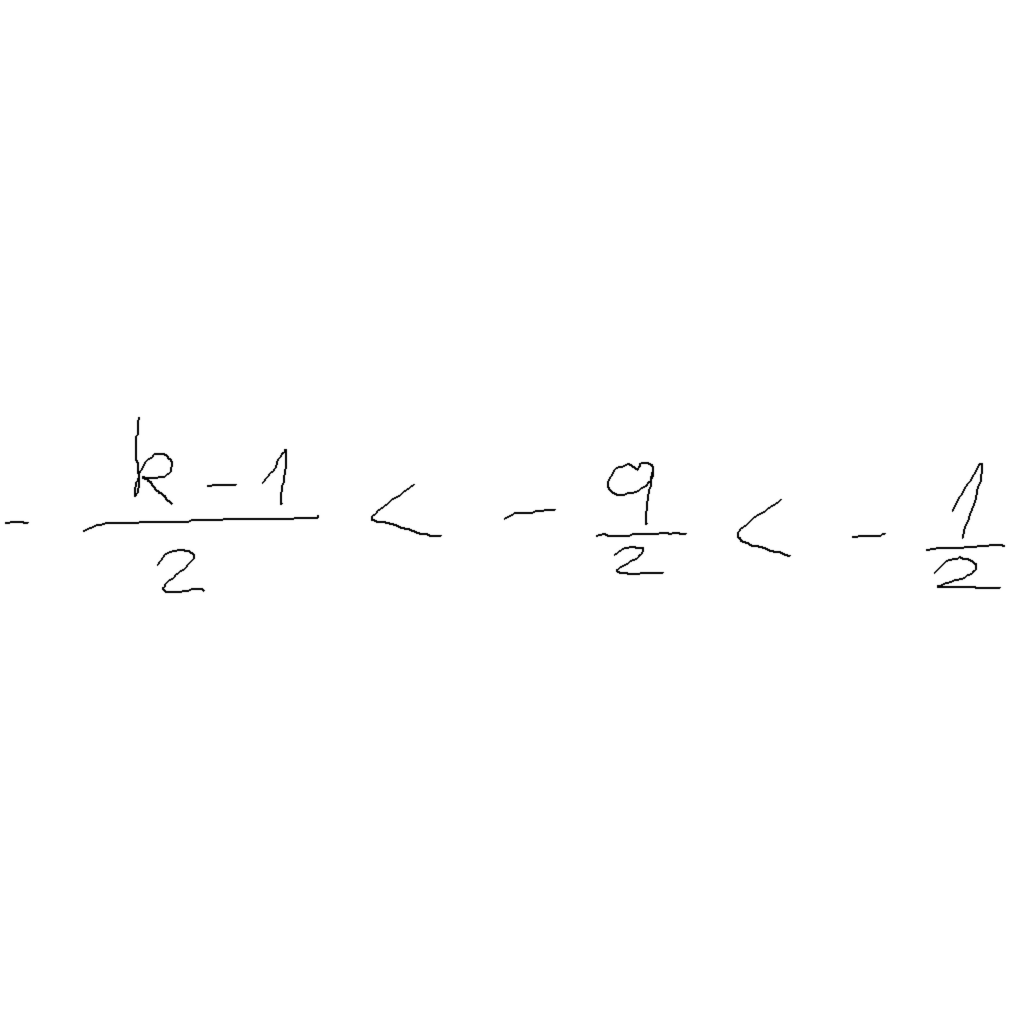 - \frac{k-1}{2} < - \frac{q}{2} < - \frac{1}{2}